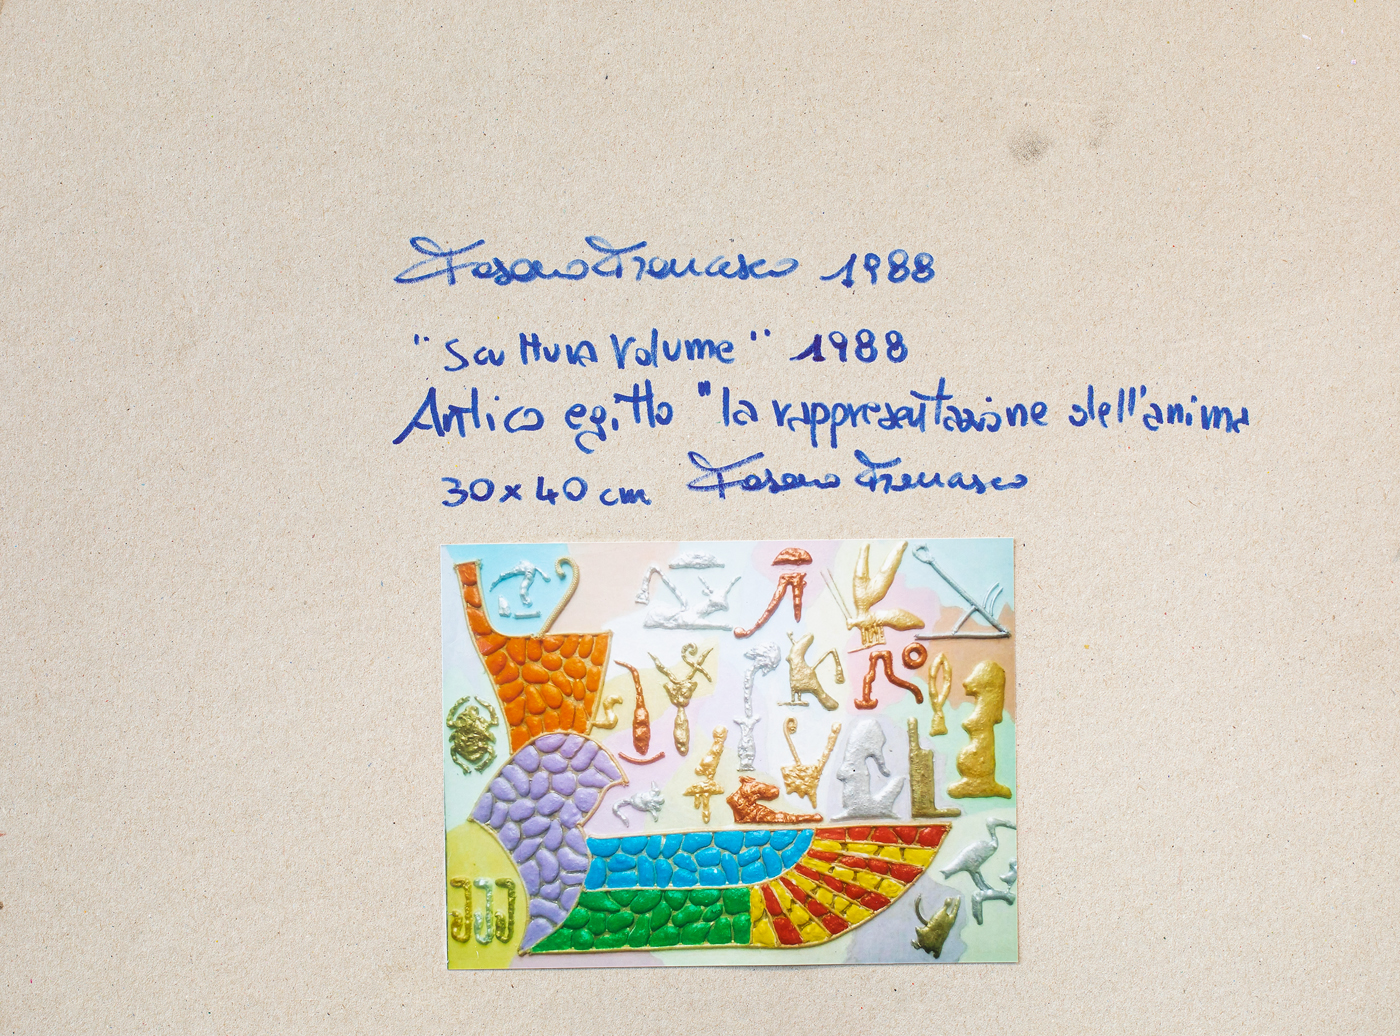 Fasano Francesco 1988
"Scultura Volume" 1988
Antico egitto "la rappresentazione dell'anima
30x40 cm Fasano Francesco